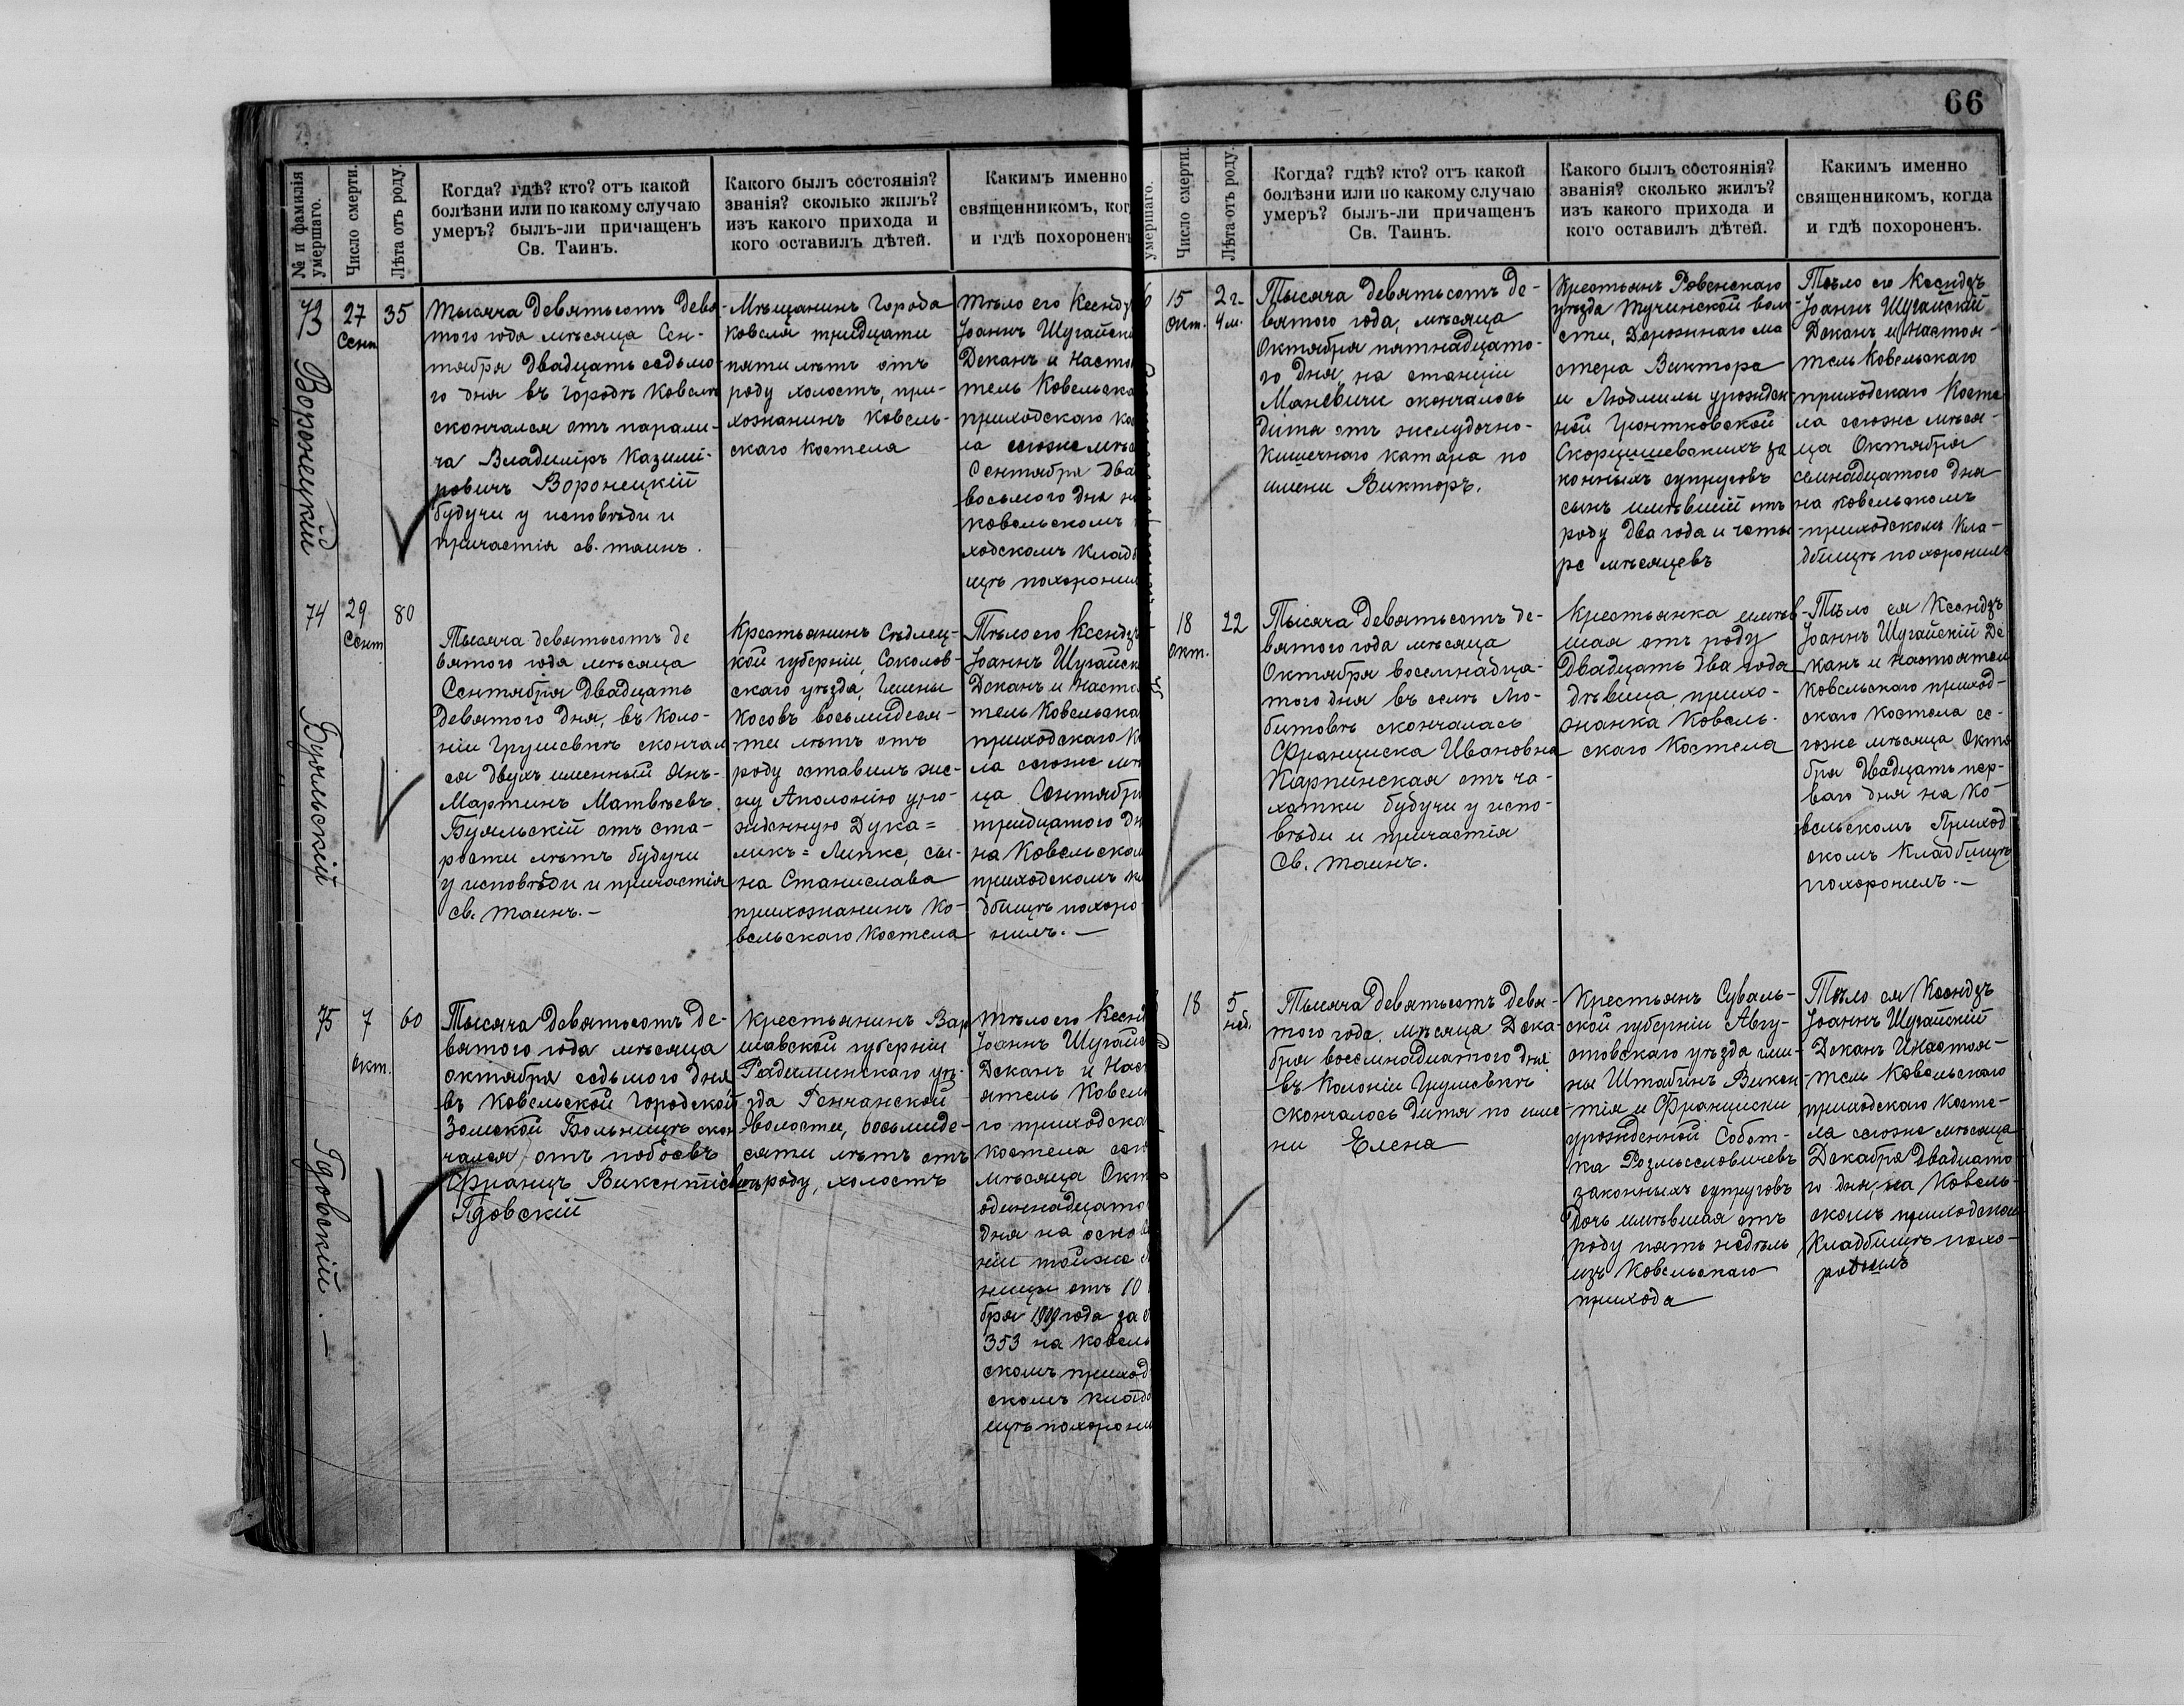 66
№ и фамилія
умершаго.
Число смерти.
Лѣта отъ роду.
Когда? гдѣ? кто? отъ какой
болѣзни или по какому случаю
умеръ? былъ-ли причащенъ
Св. Таинъ.
Какого былъ состоянія?
званія? сколько жилъ?
изъ какого прихода и
кого оставилъ дѣтей.
Какимъ именно
священникомъ, ког
и гдѣ похоронен
73
Воронецкій
27
Сент
35
Тысяча девятьсотъ девя-
того года мѣсяца Сен-
тября двадцать седьмо-
го дня въ городѣ Ковелѣ
скончался отъ парали-
ча Владиміръ Казимі-
ровичъ Воронецкій
будучи у исповѣди и
причастія св. таинъ.
Мѣщанинъ города
Ковеля тридцати
пяти лѣтъ отъ
роду холостъ, при-
хожанинъ Ковель-
скаго костела
Тѣло его Ксендз
Іоаннъ Шугайск
Деканъ и Насто
тель Ковельска
приходскаго ко
ла сегоже мѣс
Сентября два
восьмого дня н
Ковельскомъ
ходскомъ кладб
щѣ похоронил
74
Буяльскій
29
Сент.
80
Тысяча девятьсотъ де
вятого года мѣсяца
Сентября двадцать
девятого дня, въ коло-
ніи Грушевкѣ скончал
ся двухъ именный Янъ-
Мартинъ Матвѣевъ
Буяльскій отъ ста-
рости лѣтъ будучи
у исповѣди и причастія
св. таинъ.—
Крестьянинъ Сѣдлец-
кой губерніи, Соколов-
скаго уѣзда, Гмины
Косовъ восьмидеся-
ти лѣтъ отъ
роду оставилъ же-
ну Аполонію уро-
жденную Дука=
ликъ=Липке, сы-
на Станислава
прихожанинъ Ко-
вельскаго Костела
Тѣло его Ксендзъ
Іоаннъ Шугайск
Деканъ и Насто
тель Ковельска
приходскаго К
ла сегоже мѣ
ца Сентябр
тридцатого дн
на Ковельском
приходскомъ кл
дбищѣ похоро-
нилъ.—
75
Гдовскій.—
7
окт.
60
Тысяча девятьсотъ де-
вятого года мѣсяца
октября седьмого дня
въ Ковельской городской
Земской Больницѣ скон
чался, отъ побоевъ
Францъ Викентіевъ
Гдовскій
Крестьянинъ Вар
шавской губерніи
Радиминскаго уѣ-
зда Ренчанской
волости, восьмиде-
сяти лѣтъ отъ
роду, холостъ
Тѣло его Ксенд
Іоаннъ Шугайс
Деканъ и Наст
ятель Ковель
го приходска
костела сего
мѣсяца Окт
одиннадцато
дня на осно
ніи тойже
ницы отъ 10
бря 1909 года за
353 на Ковель
скомъ приход
скомъ кладб
щѣ похорони
умершаго.
Число смерти.
Лѣта отъ роду.
Когда? гдѣ? кто? отъ какой
болѣзни или по какому случаю
умеръ? былъ-ли причащенъ
Св. Таинъ.
Какого былъ состоянія?
званія? сколько жилъ?
изъ какого прихода и
кого оставилъ дѣтей.
Какимъ именно
священникомъ, когда
и гдѣ похороненъ.
6
15
окт.
2 г.
4 м.
Тысяча девятьсотъ де-
вятого года, мѣсяца
Октября пятнадцато-
го дня, на станціи
Маневичи скончалось
дитя отъ желудочно-
кишечнаго катара по
имени Викторъ.
Крестьянъ Ровенскаго
уѣзда Тучинской воло
сти, Дорожнаго ма
стера Виктора
и Людмилы урожден
ной Гронтковской
Скорцишевскихъ за
конныхъ супруговъ
сынъ имѣвшій отъ
роду два года и четы
ре мѣсяцевъ
Тѣло его Ксендзъ
Іоаннъ Шугайскій
Деканъ и Настоя-
тель Ковельскаго
приходскаго Косте
ла сегоже мѣся-
ца Октября
семнадцатого дня
на Ковельскомъ
приходскомъ кла-
дбищѣ похоронилъ
18
окт.
22
Тысяча девятьсотъ де-
вятого года мѣсяца
Октября восемнадца-
того дня въ селѣ Лю-
битовѣ скончалась
Франциска Ивановна
Карпинская отъ ча-
хотки будучи у испо-
вѣди и причастія
св. таинъ.
Крестьянка имѣв-
шая отъ роду
двадцать два года
дѣвица, прихо-
жанка Ковель-
скаго Костела
Тѣло ея Ксендзъ
Іоаннъ Шугайскій Де
канъ и настоятель
Ковельскаго приход-
скаго костела се-
гоже мѣсяца Октя
бря двадцать пер-
ваго дня на Ко-
вельскомъ Приход
скомъ Кладбищѣ
похоронилъ.—
18
5
нед.
Тысяча девятьсотъ девя-
того года, мѣсяца Дека-
бря восемнадцатого дня
въ Колоніи Грушевкѣ
скончалось дитя по име-
ни Елена
Крестьянъ Суваль-
ской губерніи Авгу-
стовскаго уѣзда гми-
ны Штабинъ Викен
тія и Франциски
урожденной Собот-
ка Розмысловичевъ
законныхъ супруговъ
дочь имѣвшая отъ
роду пять недѣль
изъ Ковельскаго
прихода
Тѣло ея Ксендзъ
Іоаннъ Шугайскій
Деканъ и Настоя-
тель Ковельскаго
приходскаго Косте-
ла сегоже мѣсяца
Декабря двадцато-
го дня, на Ковель-
скомъ приходскомъ
Кладбищѣ похо-
ронилъ